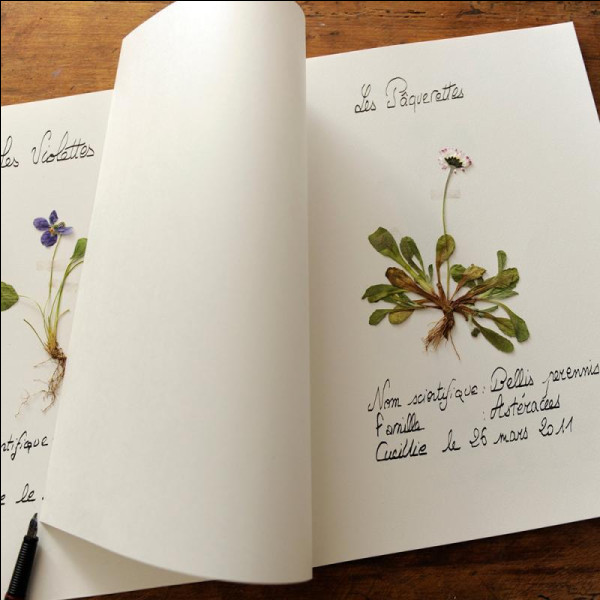 Les Violettes
ntifique
e le.
Les Pâquerettes
Nom scientifique : Bellis perennis
Famille : Astéracées
Cueillie le 26 mars 2011